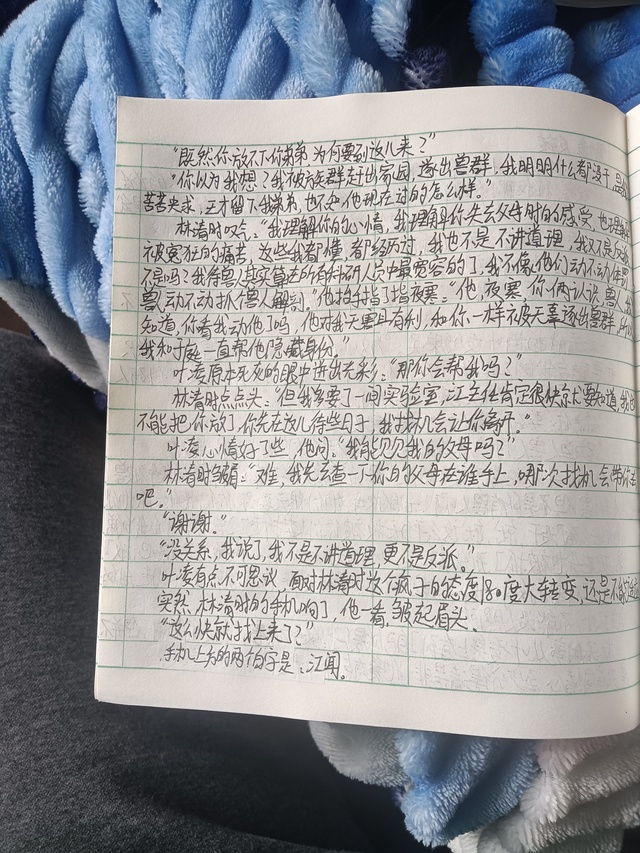 “既然你放不下你弟弟,为何要到这儿来?”
“你以为我想?我被族群赶出家园,逐出兽群,我明明什么都没干,
苦苦央求,王才留下我弟弟,也不知他现在过的怎么样。”
林清时叹气:“我理解你的心情,我理解你失去父母时的感受,也理解
被冤枉的痛苦,这些我都懂,都经历过,我也不是不讲道理,我又不是反派
不是吗?我待兽人其实算是所有科研人员中最宽容的了,我不像他们动不动体罚
兽人,动不动抓兽人解剖。”他抬手指了指夜寒:“他,夜寒,你俩认识,兽人
知道,你看我动他了吗,他对我无害且有利,和你一样被无辜逐出兽群,所以
我和于庭一直帮他隐藏身份。”
叶凌原本死灰的眼中迸出光彩:“那你会帮我吗?”
林清时点点头:“但我多要了一间实验室,江主任肯定很快就要知道,我
不能把你放了,你先在这儿待些日子,我找机会让你离开。”
叶凌心情好了些,他问:“我能见见我的父母吗?”
林清时皱眉:“难,我先去查一下你的父母在谁手上,哪次找机会带你去
吧。”
“谢谢。”
“没关系,我说了,我不是不讲道理,更不是反派。”
叶凌有点不可思议,面对林清时这个疯子的态度180度大转变,还是不能适应
突然,林清时的手机响了,他一看,皱起眉头。
“这么快就找上来了?”
手机上方的两个白字是:江闻。